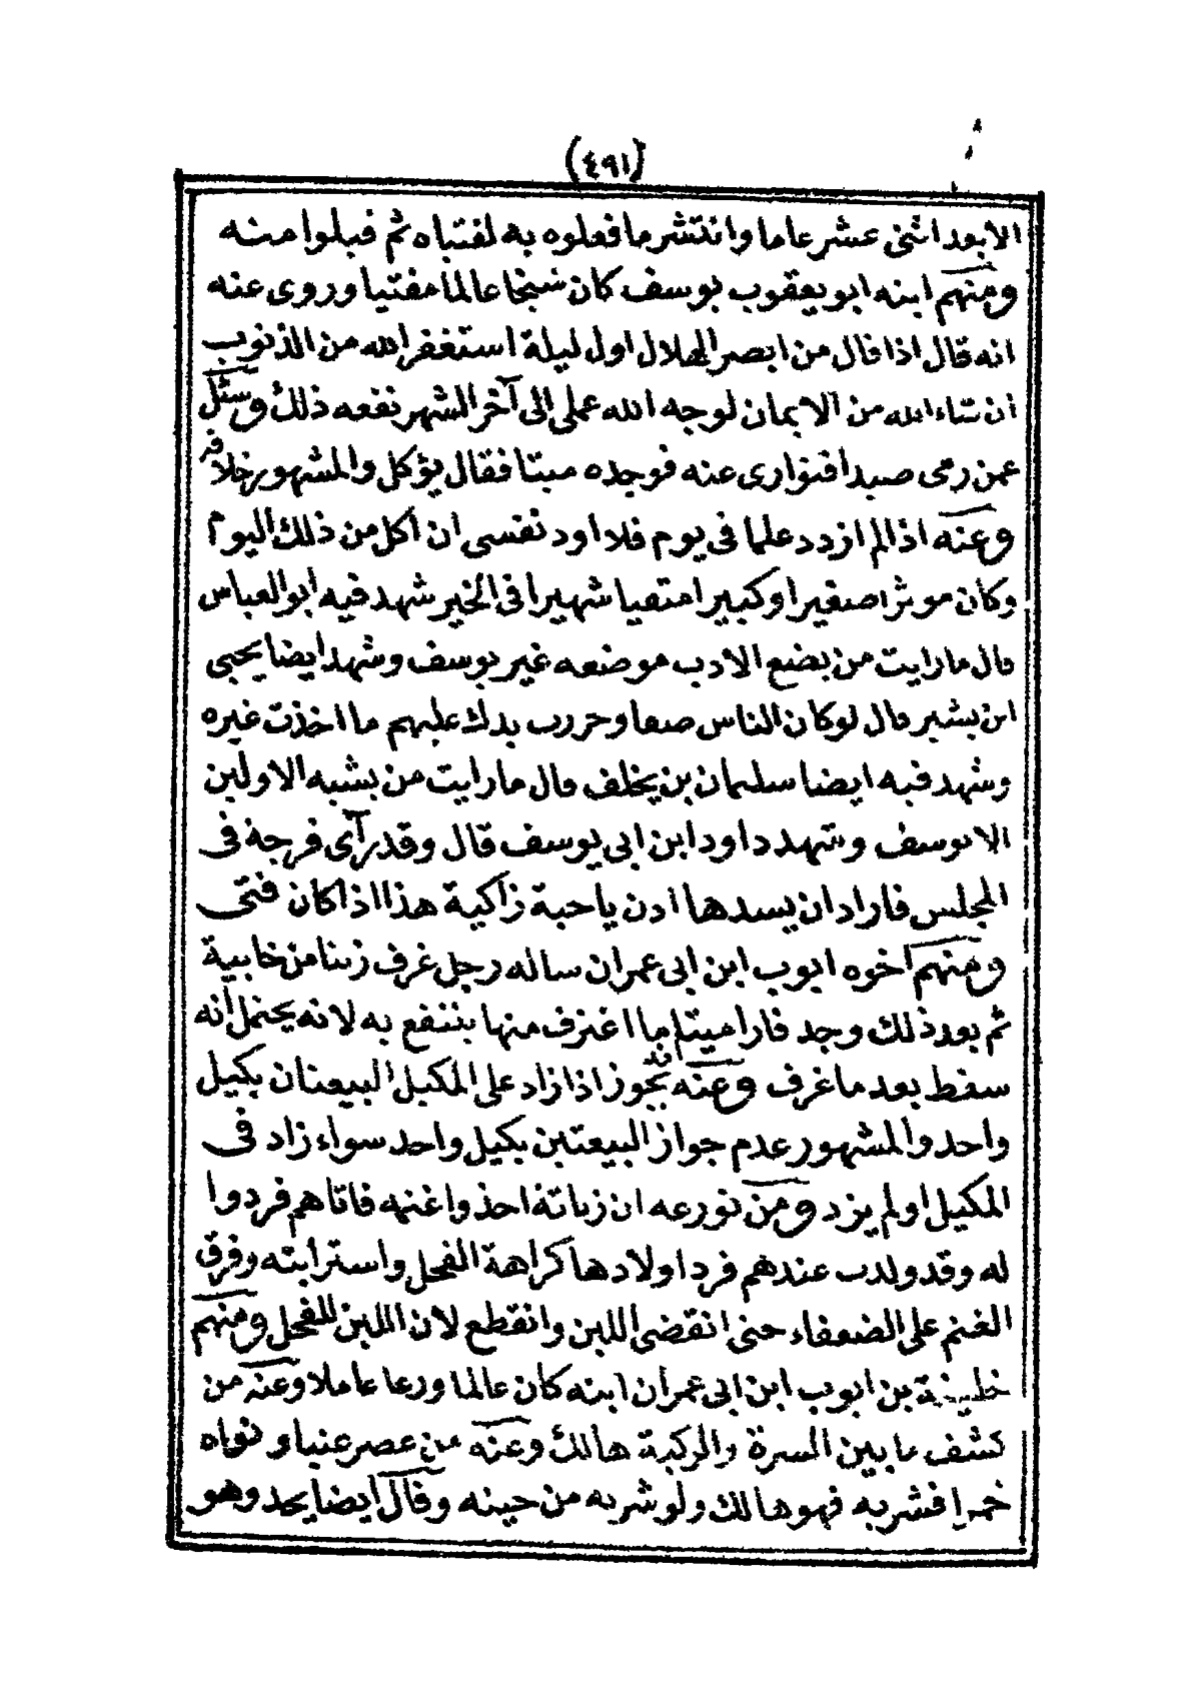 (٤٩١)
الا بعد اثنى عشر عاما وانتشر ما فعلوه به لفتياه ثم قبلوا منه
ومنهم ابنه ابو يعقوب يوسف كان شيخا عالما مفتيا وروى عنه
انه قال اذا قال من ابصر الهلال اول ليلة استغفر الله من الذنوب
ان شاء الله من الايمان لوجه الله عملى الى آخر الشهر نفعه ذلك وسئل
عمن رمى صيدا فتوارى عنه فوجده ميتا فقال يؤكل والمشهور خلافه
وعنه اذا لم ازدد علما فى يوم فلا اود نفسى ان آكل من ذلك اليوم
وكان موثرا صغيرا وكبيرا متعبا شهيرا فى الخير شهد فيه ابو العباس
قال ما رايت من يضع الادب موضعه غير يوسف وشهد ايضا يحيى
ابن بشير قال لو كان الناس صفا وحررت يدك عليهم ما اخذت غيره
وشهد فيه ايضا سليمان بن يخلف قال ما رايت من يشبه الاولين
الا يوسف وشهد داود ابن ابى يوسف قال وقد رآى فرجة فى
المجلس فاراد ان يسدها ادن يا حبة زاكية هذا اذا كان فتى
ومنهم اخوه ايوب ابن ابى عمران ساله رجل غرف زيتا من خابية
ثم بعد ذلك وجد فارا ميتا ما اغترف منها ينتفع به لانه يحتمل انه
سقط بعد ما غرف وعنه انه يجوز اذا زاد على المكيل البيعتان بكيل
واحد والمشهور عدم جواز البيعتين بكيل واحد سواء زاد فى
المكيل او لم يزد ومن تورعه ان زناتة اخذوا غنمه فاتاهم فردوا
له وقد ولدت عندهم فرد اولادها كراهة الفحل واسترابته وفرق
الغنم على الضعفاء حتى انقضى اللبن وانقطع لان اللبن للفحل ومنهم
خليفة بن ايوب ابن ابى عمران ابنه كان عالما ورعا عاملا وعنه من
كشف ما بين السرة والركبة هالك وعنه من عصر عنبا ونواه
خمرا فشربه فهو هالك ولو شربه من حينه وقال ايضا يحد وهو